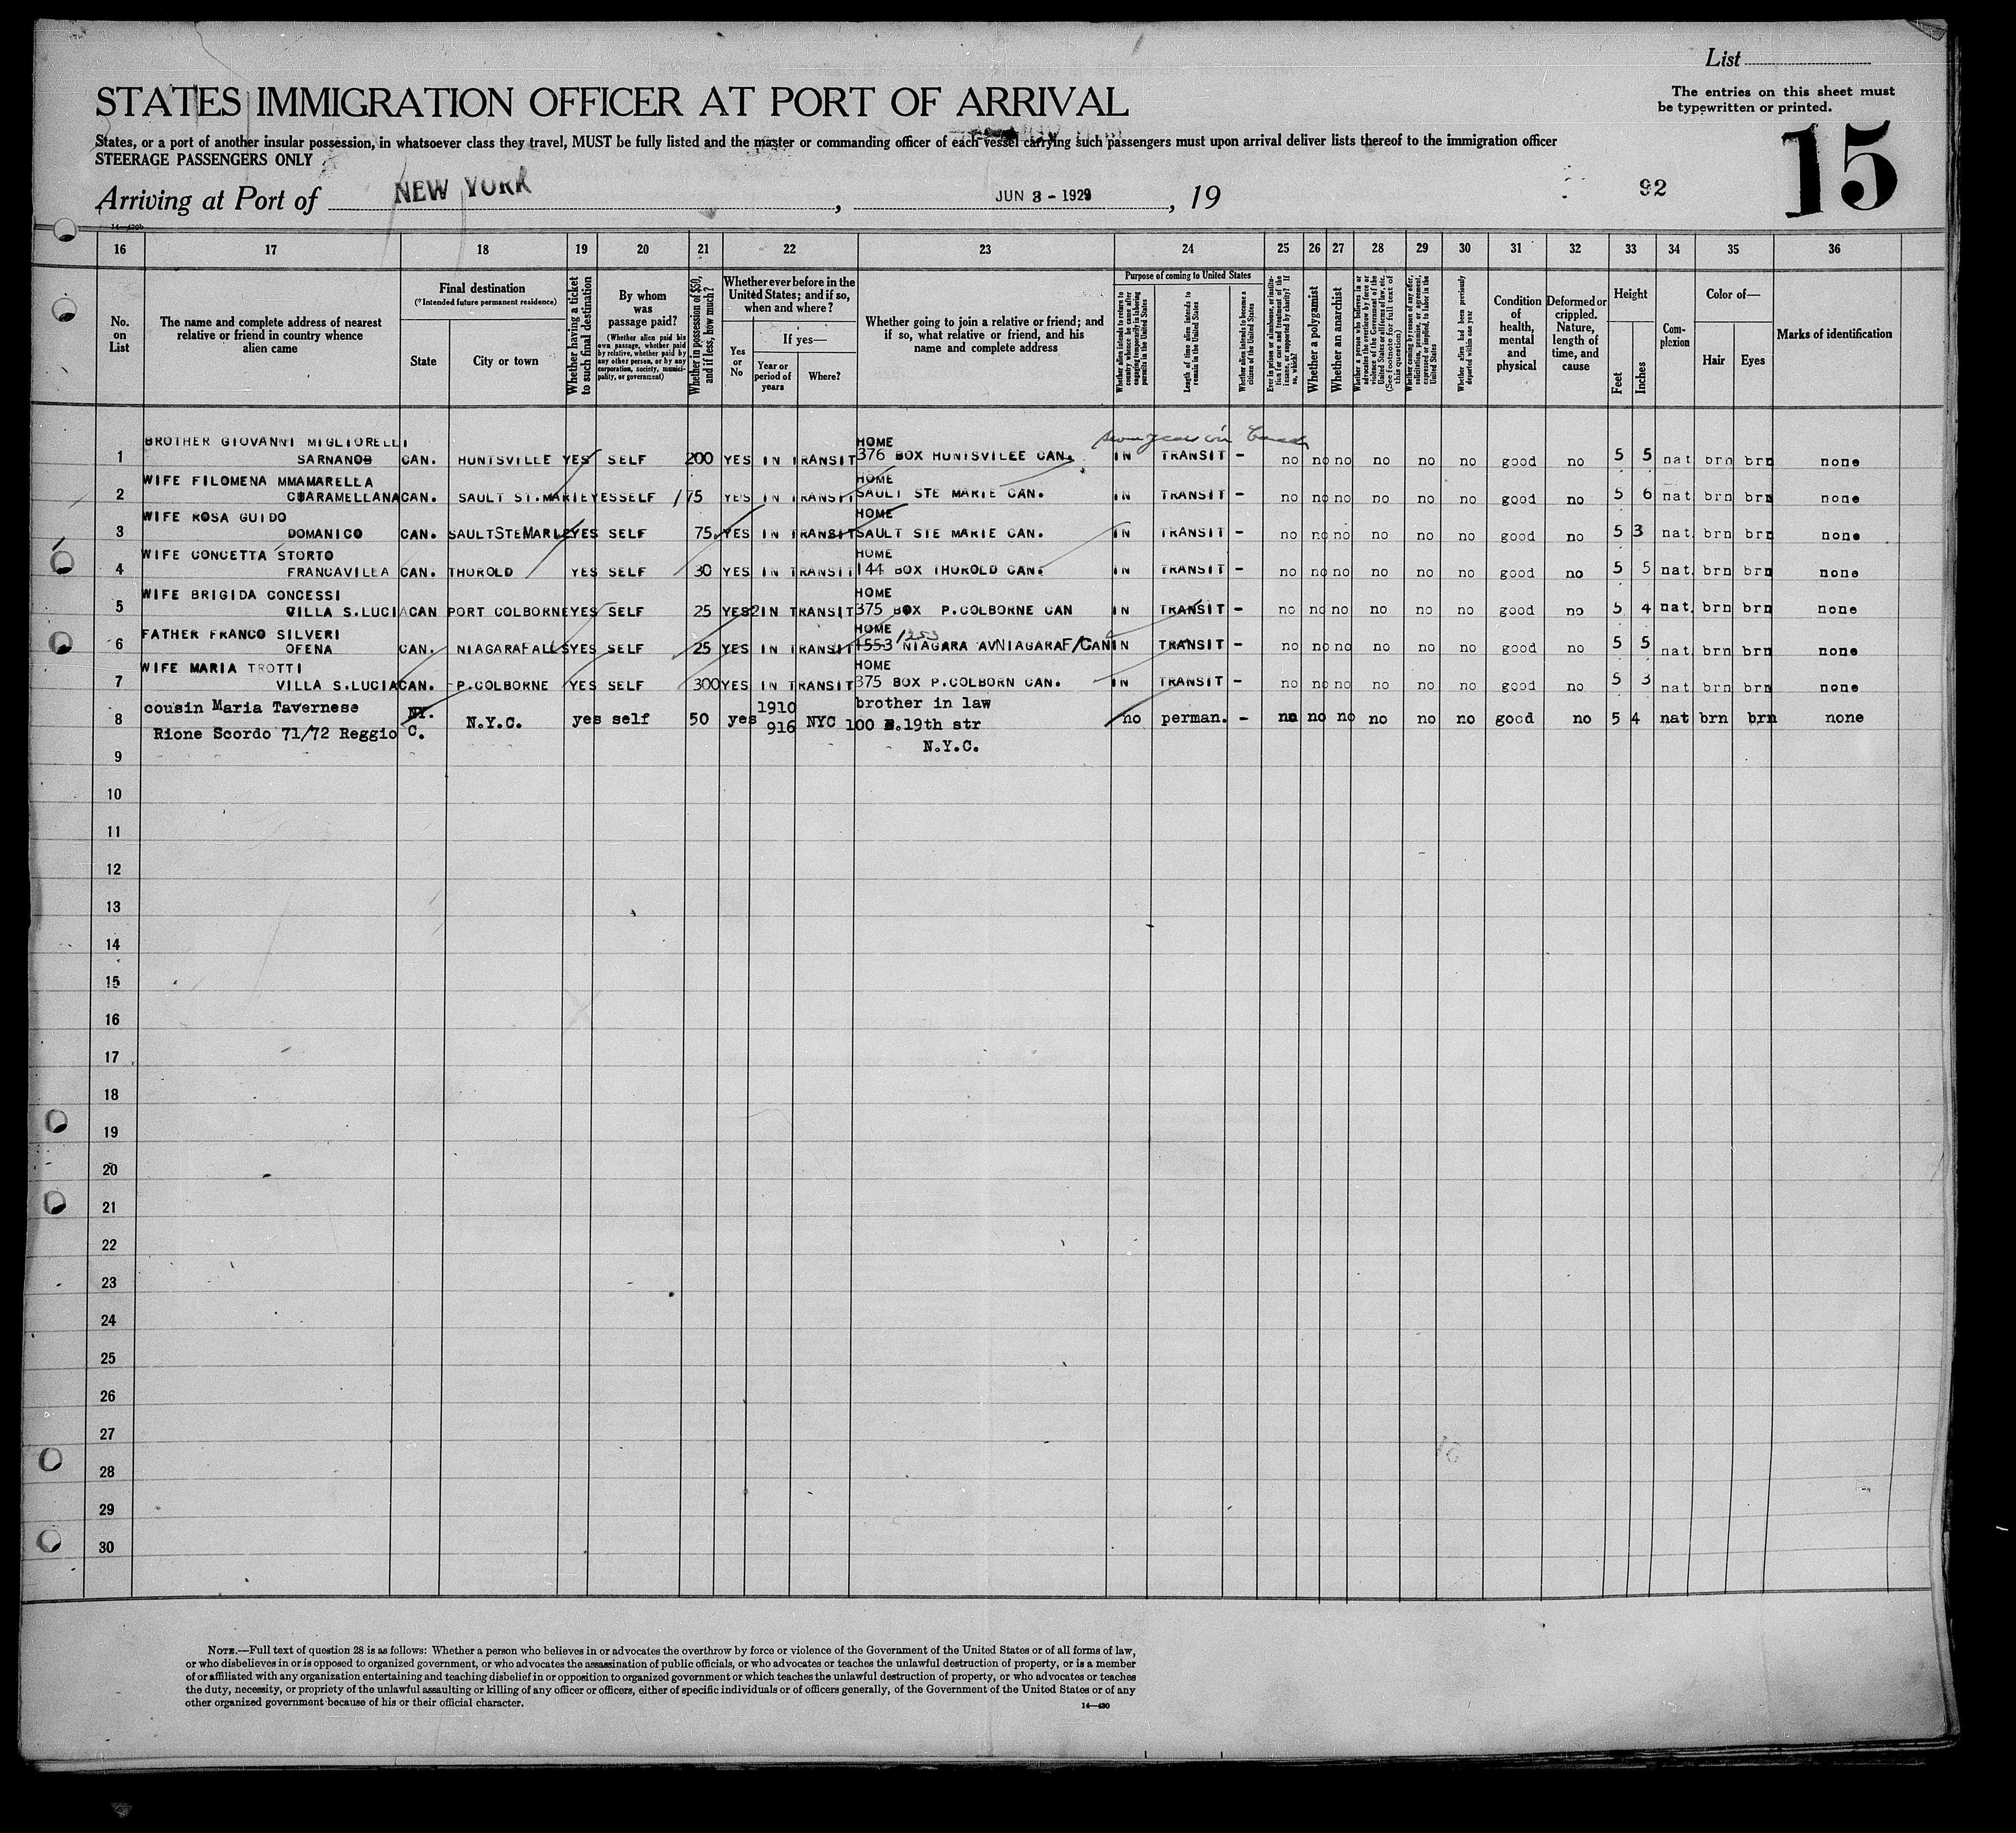 List
STATES IMMIGRATION OFFICER AT PORT OF ARRIVAL
The entries on this sheet must
be typewritten or printed.
States, or a port of another insular possession, in whatsoever class they travel, MUST be fully listed and the master or commanding officer of each vessel carrying such passengers must upon arrival deliver lists thereof to the immigration officer
STEERAGE PASSENGERS ONLY
15
Arriving at Port of NEW YORK, JUN 3 - 1929, 19
92
16 17 18 19 20 21 22 23 24 25 26 27 28 29 30 31 32 33 34 35 36
No. on List
The name and complete address of nearest relative or friend in country whence alien came
Final destination
(*Intended future permanent residence)
State
City or town
Whether having a ticket to such final destination
By whom was passage paid?
(Whether alien paid his own passage, whether paid by relative, whether paid by any other person, or by any corporation, society, municipality, or government)
Whether in possession of $50, and if less, how much?
Whether ever before in the United States; and if so, when and where?
Yes or No
If yes—
Year or period of years
Where?
Whether going to join a relative or friend; and if so, what relative or friend, and his name and complete address
Purpose of coming to United States
Whether alien intends to return to country whence he came after engaging temporarily in laboring pursuits in the United States
Length of time alien intends to remain in the United States
Whether alien intends to become a citizen of the United States
Ever in prison or almshouse, or institution for care and treatment of the insane, or supported by charity? If so, which?
Whether a polygamist
Whether an anarchist
Whether a person who believes in or advocates the overthrow by force or violence of the Government of the United States or all forms of law, etc. (See footnote for full text of this question)
Whether coming by reason of any offer, solicitation, promise, or agreement, expressed or implied, to labor in the United States
Whether alien had been previously deported within one year
Condition of health, mental and physical
Deformed or crippled. Nature, length of time, and cause
Height
Feet
Inches
Complexion
Color of—
Hair
Eyes
Marks of identification
BROTHER GIOVANNI MIGLIORELLI HOME
1 SARNANO CAN. HUNTSVILLE YES SELF 200 YES IN TRANSIT 376 BOX HUNTSVILEE CAN. IN TRANSIT - no no no no no no good no 5 5 nat brn brn none
WIFE FILOMENA MMAMARELLA HOME
2 CIARAMELLANA CAN. SAULT ST.MARIE YES SELF 75 YES IN TRANSIT SAULT STE MARIE CAN. IN TRANSIT - no no no no no no good no 5 6 nat brn brn none
WIFE ROSA GUIDO HOME
3 DOMANICO CAN. SAULTSTEMARIE YES SELF 75 YES IN TRANSIT SAULT STE MARIE CAN. IN TRANSIT - no no no no no no good no 5 3 nat. brn brn none
WIFE CONCETTA STORTO HOME
4 FRANCAVILLA CAN. THOROLD YES SELF 30 YES IN TRANSIT 144 BOX THOROLD CAN. IN TRANSIT - no no no no no no good no 5 5 nat. brn brn none
WIFE BRIGIDA CONCESSI HOME
5 VILLA S.LUCIA CAN PORT COLBORNE YES SELF 25 YES IN TRANSIT 375 BOX P.COLBORNE CAN IN TRANSIT - no no no no no no good no 5 4 nat. brn brn none
FATHER FRANCO SILVERI HOME 1253
6 OFENA CAN. NIAGARAFALLS YES SELF 25 YES IN TRANSIT 1553 NIAGARA AVNIAGARAF/CAN IN TRANSIT - no no no no no no good no 5 5 nat. brn brn none
WIFE MARIA TROTTI HOME
7 VILLA S.LUCIA CAN. P.COLBORNE YES SELF 300 YES IN TRANSIT 375 BOX P.COLBORN CAN. IN TRANSIT - no no no no no no good no 5 3 nat brn brn none
cousin Maria Tavernese NY. 1910 brother in law
8 N.Y.C. yes self 50 yes 916 NYC 100 E.19th str no perman. - no no no no no no good no 5 4 nat brn brn none
Rione Scordo 71/72 Reggio C. N.Y.C.
9
10
11
12
13
14
15
16
17
18
19
20
21
22
23
24
25
26
27
28
29
30
NOTE.—Full text of question 28 is as follows: Whether a person who believes in or advocates the overthrow by force or violence of the Government of the United States or of all forms of law,
or who disbelieves in or is opposed to organized government, or who advocates the assassination of public officials, or who advocates or teaches the unlawful destruction of property, or is a member
of or affiliated with any organization entertaining and teaching disbelief in or opposition to organized government or which teaches the unlawful destruction of property, or who advocates or teaches
the duty, necessity, or propriety of the unlawful assaulting or killing of any officer or officers, either of specific individuals or of officers generally, of the Government of the United States or of any
other organized government because of his or their official character.
14—430